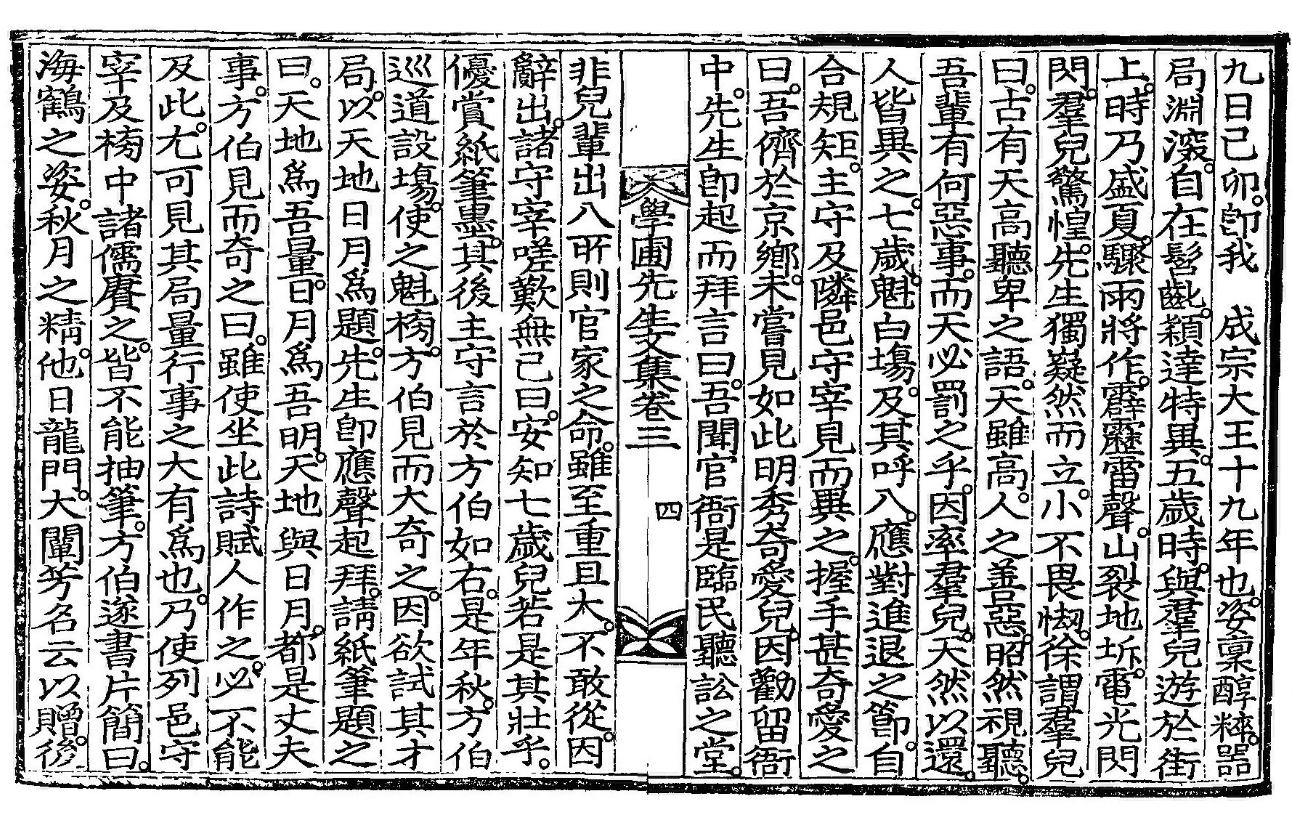 九日己卯。卽我　成宗大王十九年也。姿稟醇粹。器
局淵深。自在髫齔。穎達特異。五歲時。與羣兒遊於街
上。時乃盛夏。驟雨將作。霹靂雷聲。山裂地坼。雷光閃
閃。羣兒驚惶。先生獨凝然而立。小不畏㥘。徐謂羣兒
曰。古有天高聽卑之語。天雖高。人之善惡。昭然視聽。
吾輩有何惡事。而天必罰之乎。因率羣兒。天然以還。
人皆異之。七歲。魁白塲。及其呼入。應對進退之節。自
合規矩。主守及隣邑守宰見而異之。握手甚奇愛之
曰。吾儕於京鄕。未嘗見如此明秀奇愛兒。因勸留衙
中。先生卽起而拜言曰。吾聞官衙是臨民聽訟之堂。
學圃先生文集卷三
四
非兒輩出入所則官家之命。雖至重且大。不敢從。因
辭出。諸守宰嗟歎無已曰。安知七歲兒若是其壯乎。
優賞紙筆墨。其後主守言於方伯如右。是年秋。方伯
巡道設塲。使之魁榜。方伯見而大奇之。因欲試其才
局。以天地日月爲題。先生卽應聲起拜。請紙筆題之
曰。天地爲吾量。日月爲吾明。天地與日月。都是丈夫
事。方伯見而奇之曰。雖使坐此詩賦人作之。必不能
及此。尤可見其局量行事之大有爲也。乃使列邑守
宰及榜中諸儒賡之。皆不能抽筆。方伯遂書片簡曰。
海鶴之姿。秋月之精。他日龍門。大闡芳名云以贈。後